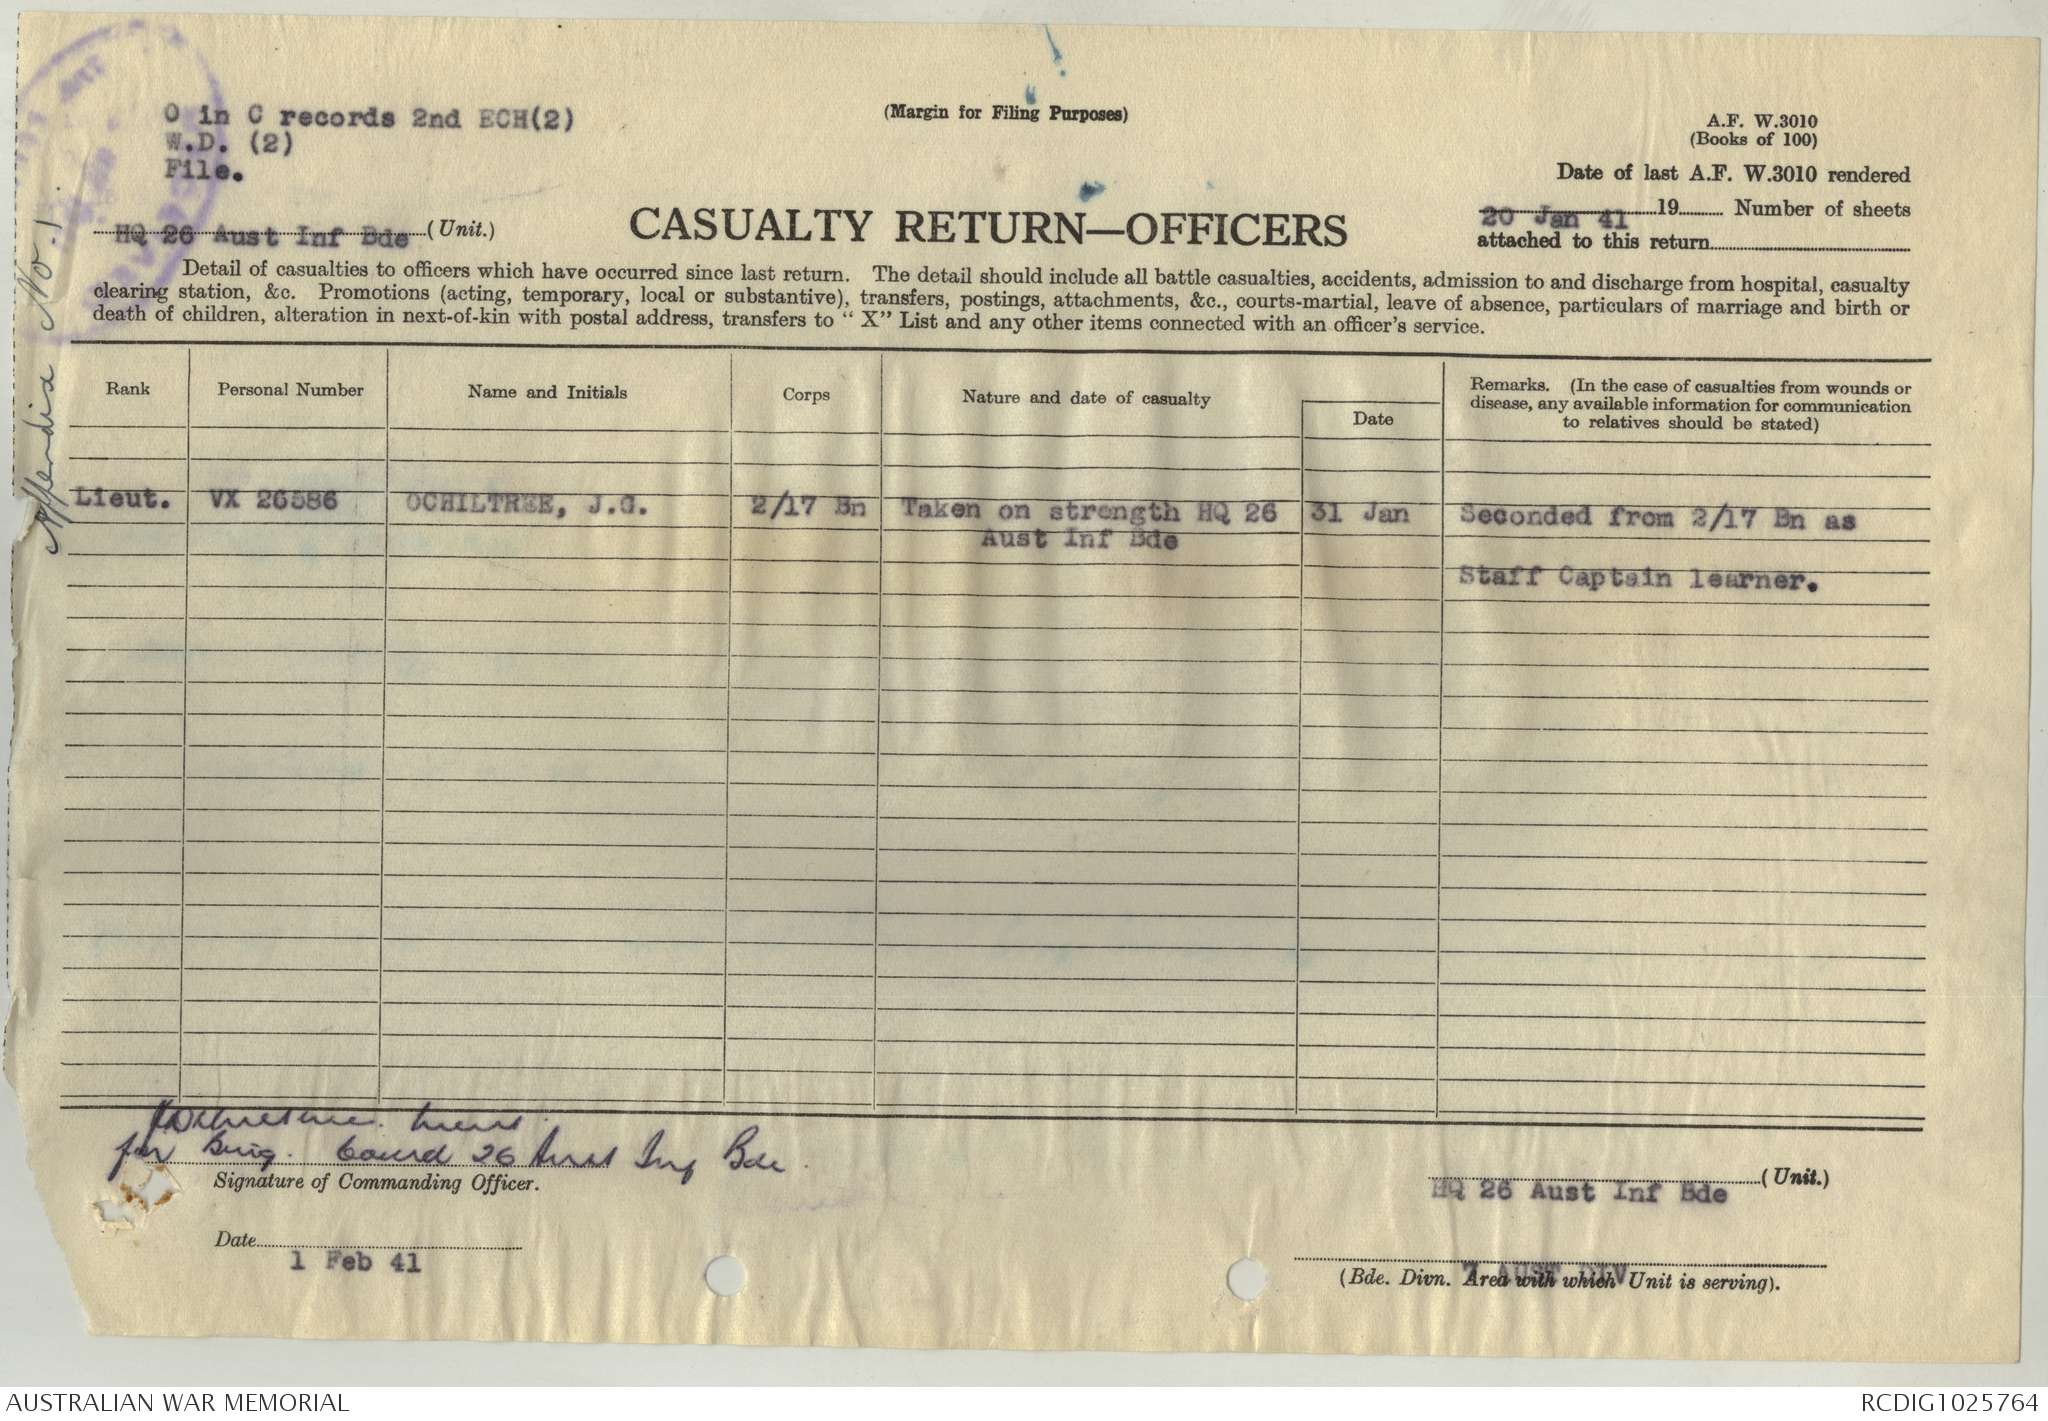 O in C records 2nd ECH(2)
W.D. (2)
File.
(Margin for Filing Purposes)
A.F. W.3010
(Books of 100)
Date of last A.F. W.3010 rendered
20 Jan 41 19 Number of sheets
attached to this return
HQ 26 Aust Inf Bde (Unit.)
CASUALTY RETURN—OFFICERS
Appendix No. 1.
Detail of casualties to officers which have occurred since last return. The detail should include all battle casualties, accidents, admission to and discharge from hospital, casualty
clearing station, &c. Promotions (acting, temporary, local or substantive), transfers, postings, attachments, &c., courts-martial, leave of absence, particulars of marriage and birth or
death of children, alteration in next-of-kin with postal address, transfers to "X" List and any other items connected with an officer's service.
Rank Personal Number Name and Initials Corps Nature and date of casualty Date Remarks. (In the case of casualties from wounds or
disease, any available information for communication
to relatives should be stated)
Lieut. VX 26586 OCHILTREE, J.G. 2/17 Bn Taken on strength HQ 26 31 Jan Seconded from 2/17 Bn as
Aust Inf Bde
Staff Captain learner.
for Brig. Comd 26 Aust Inf Bde.
Signature of Commanding Officer.
(Unit.)
HQ 26 Aust Inf Bde
Date
1 Feb 41
7 AUST DIV
(Bde. Divn. Area with which Unit is serving).
AUSTRALIAN WAR MEMORIAL
RCDIG1025764